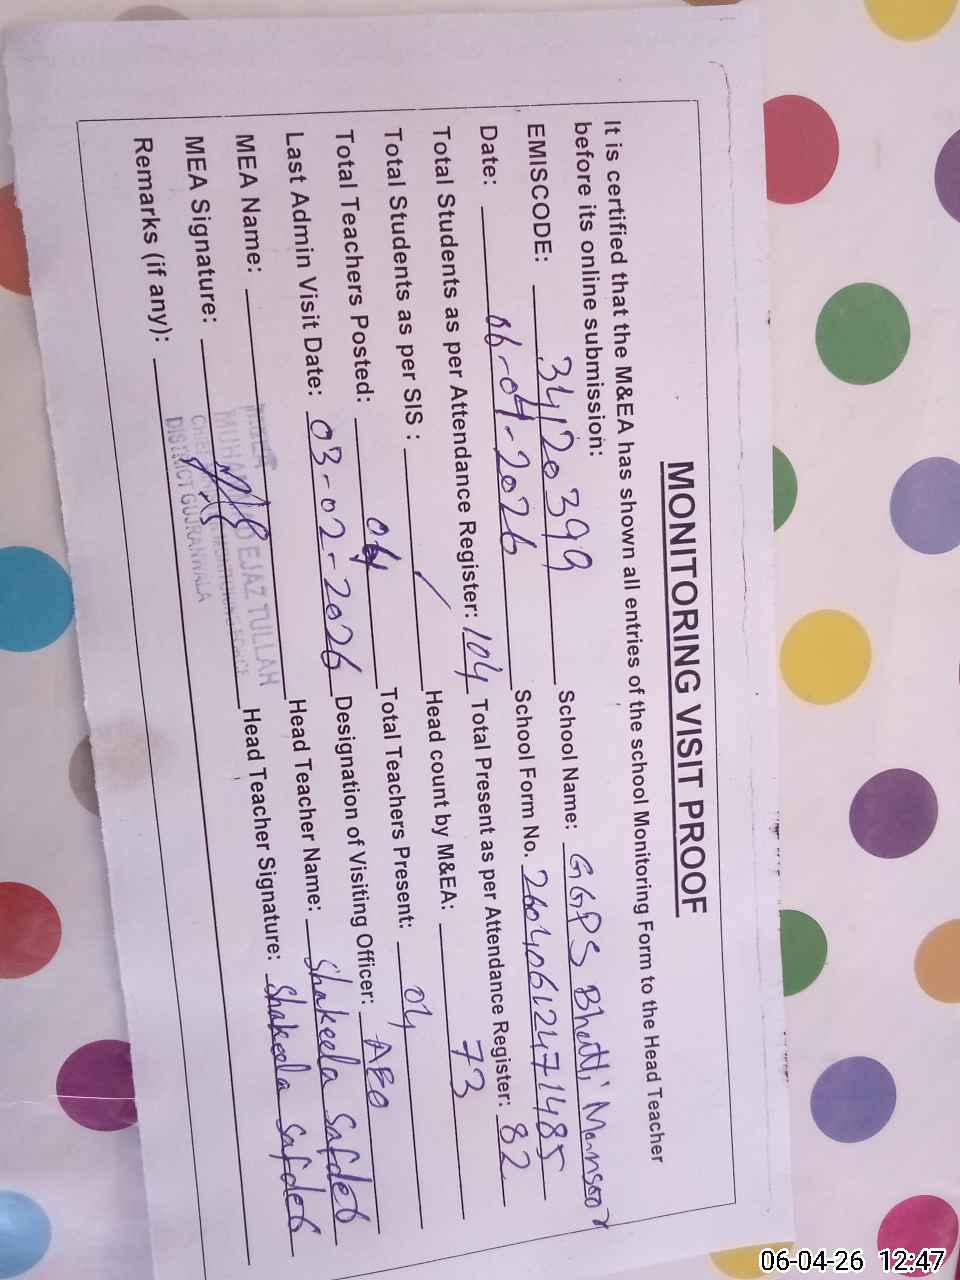 MONITORING VISIT PROOF
It is certified that the M&EA has shown all entries of the school Monitoring Form to the Head Teacher
before its online submission:
EMISCODE: 34120399 School Name: GGPS Bhatti Mansoor
Date: 06-04-2026 School Form No. 26040612471485
Total Students as per Attendance Register: 104 Total Present as per Attendance Register: 82
Total Students as per SIS : / Head count by M&EA: 73
Total Teachers Posted: 04 Total Teachers Present: 04
Last Admin Visit Date: 03-02-2026 Designation of Visiting Officer: AEO
MEA Name: EJAZ TULLAH Head Teacher Name: Shakeela Safder
MEA Signature: Head Teacher Signature: Shakeela Safder
DISTRICT GUJRANWALA
Remarks (if any):
06-04-26 12:47